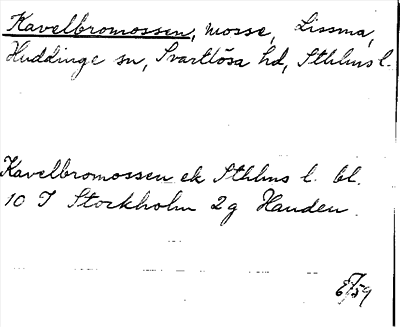 Kavelbromossen, mosse, Lissma,
Huddinge sn, Svartlösa hd, Sthlms l.
Kavelbromossen ek Sthlms l. bl.
10 I Stockholm 2g Handen.